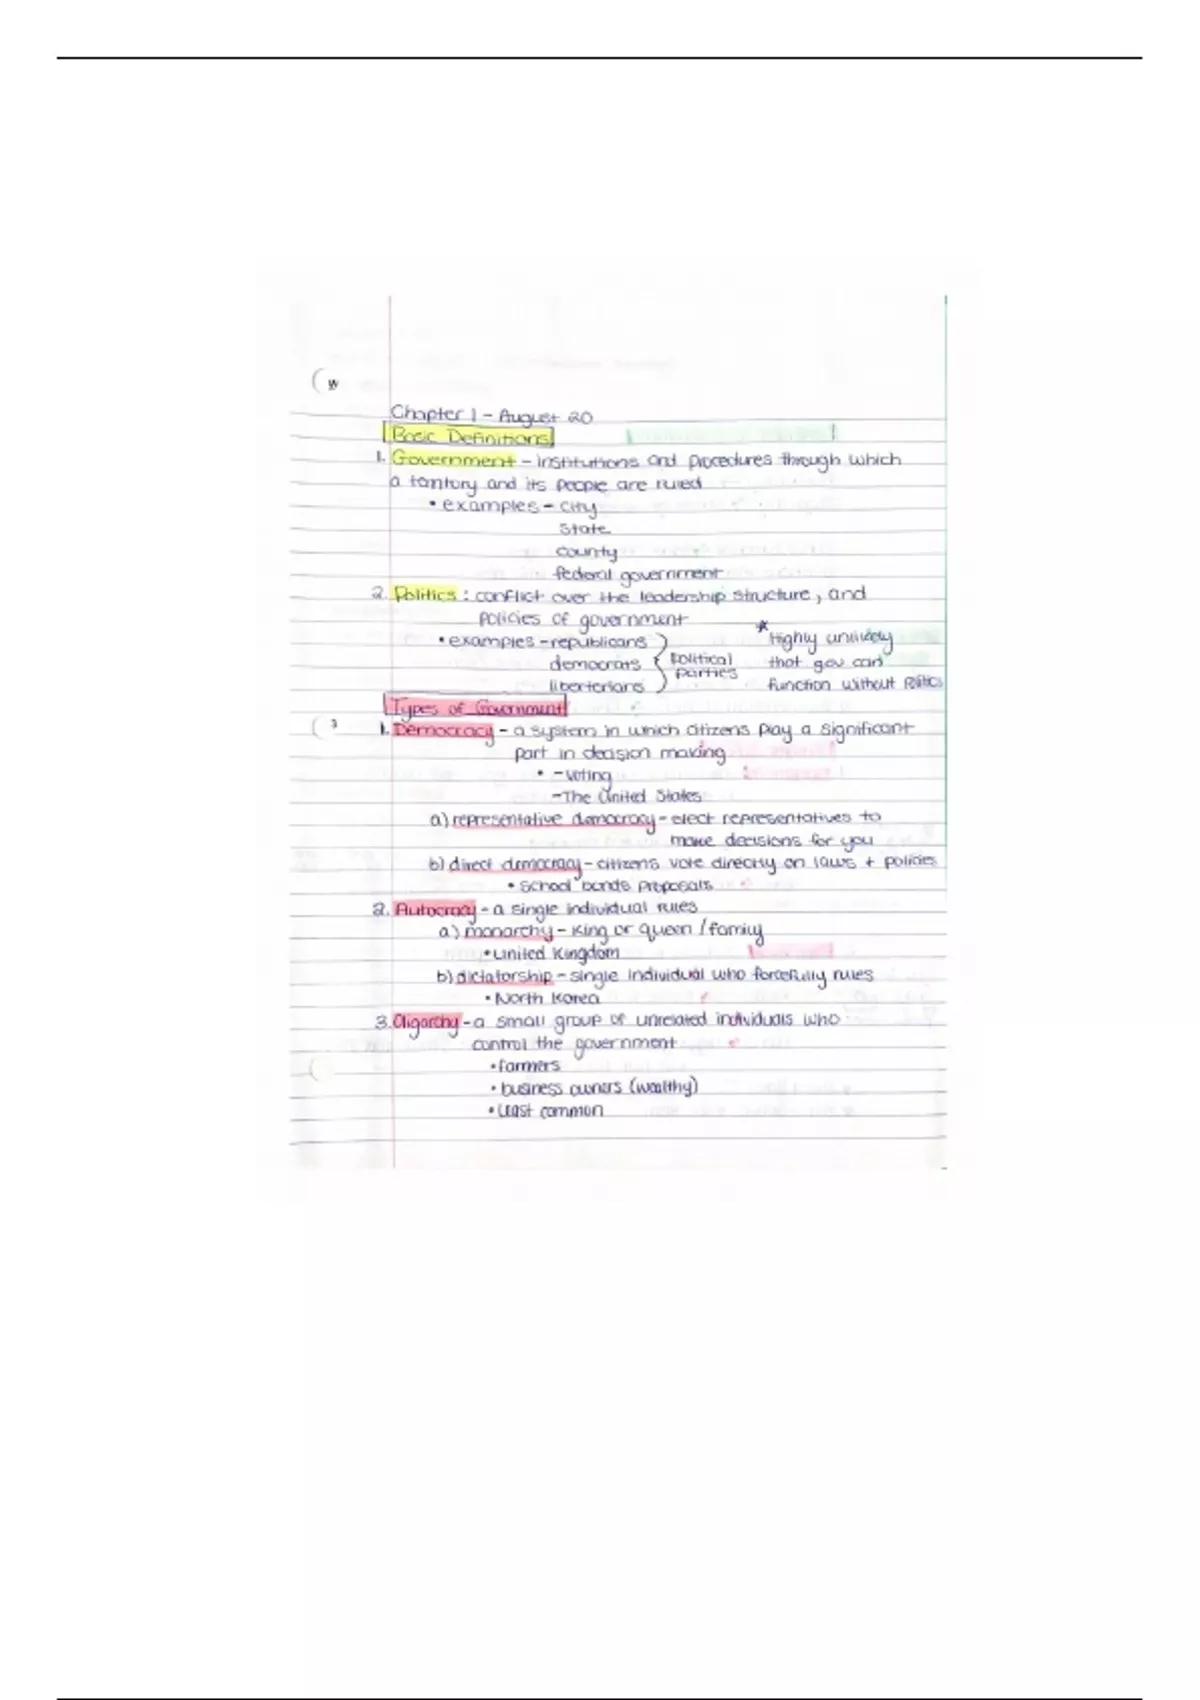 Chapter 1 - August 20
Basic Definitions
1. Government - institutions and procedures through which
a territory and its people are ruled
• examples - city
state
county
federal government
2. Politics : conflict over the leadership structure, and
policies of government
• examples - republicans
democrats
libertarians
} Political parties
* Highly unlikely
that gov can
function without Politics
Types of Government
1. Democracy - a system in which citizens play a significant
part in decision making
• - voting
- The United States
a) representative democracy - elect representatives to
make decisions for you
b) direct democracy - citizens vote directly on laws + policies
• School bonds proposals
2. Autocracy - a single individual rules
a) monarchy - King or queen / family
• United Kingdom
b) dictatorship - single individual who forcefully rules
• North Korea
3. Oligarchy - a small group of unrelated individuals who
control the government
• farmers
• business owners (wealthy)
• Least common